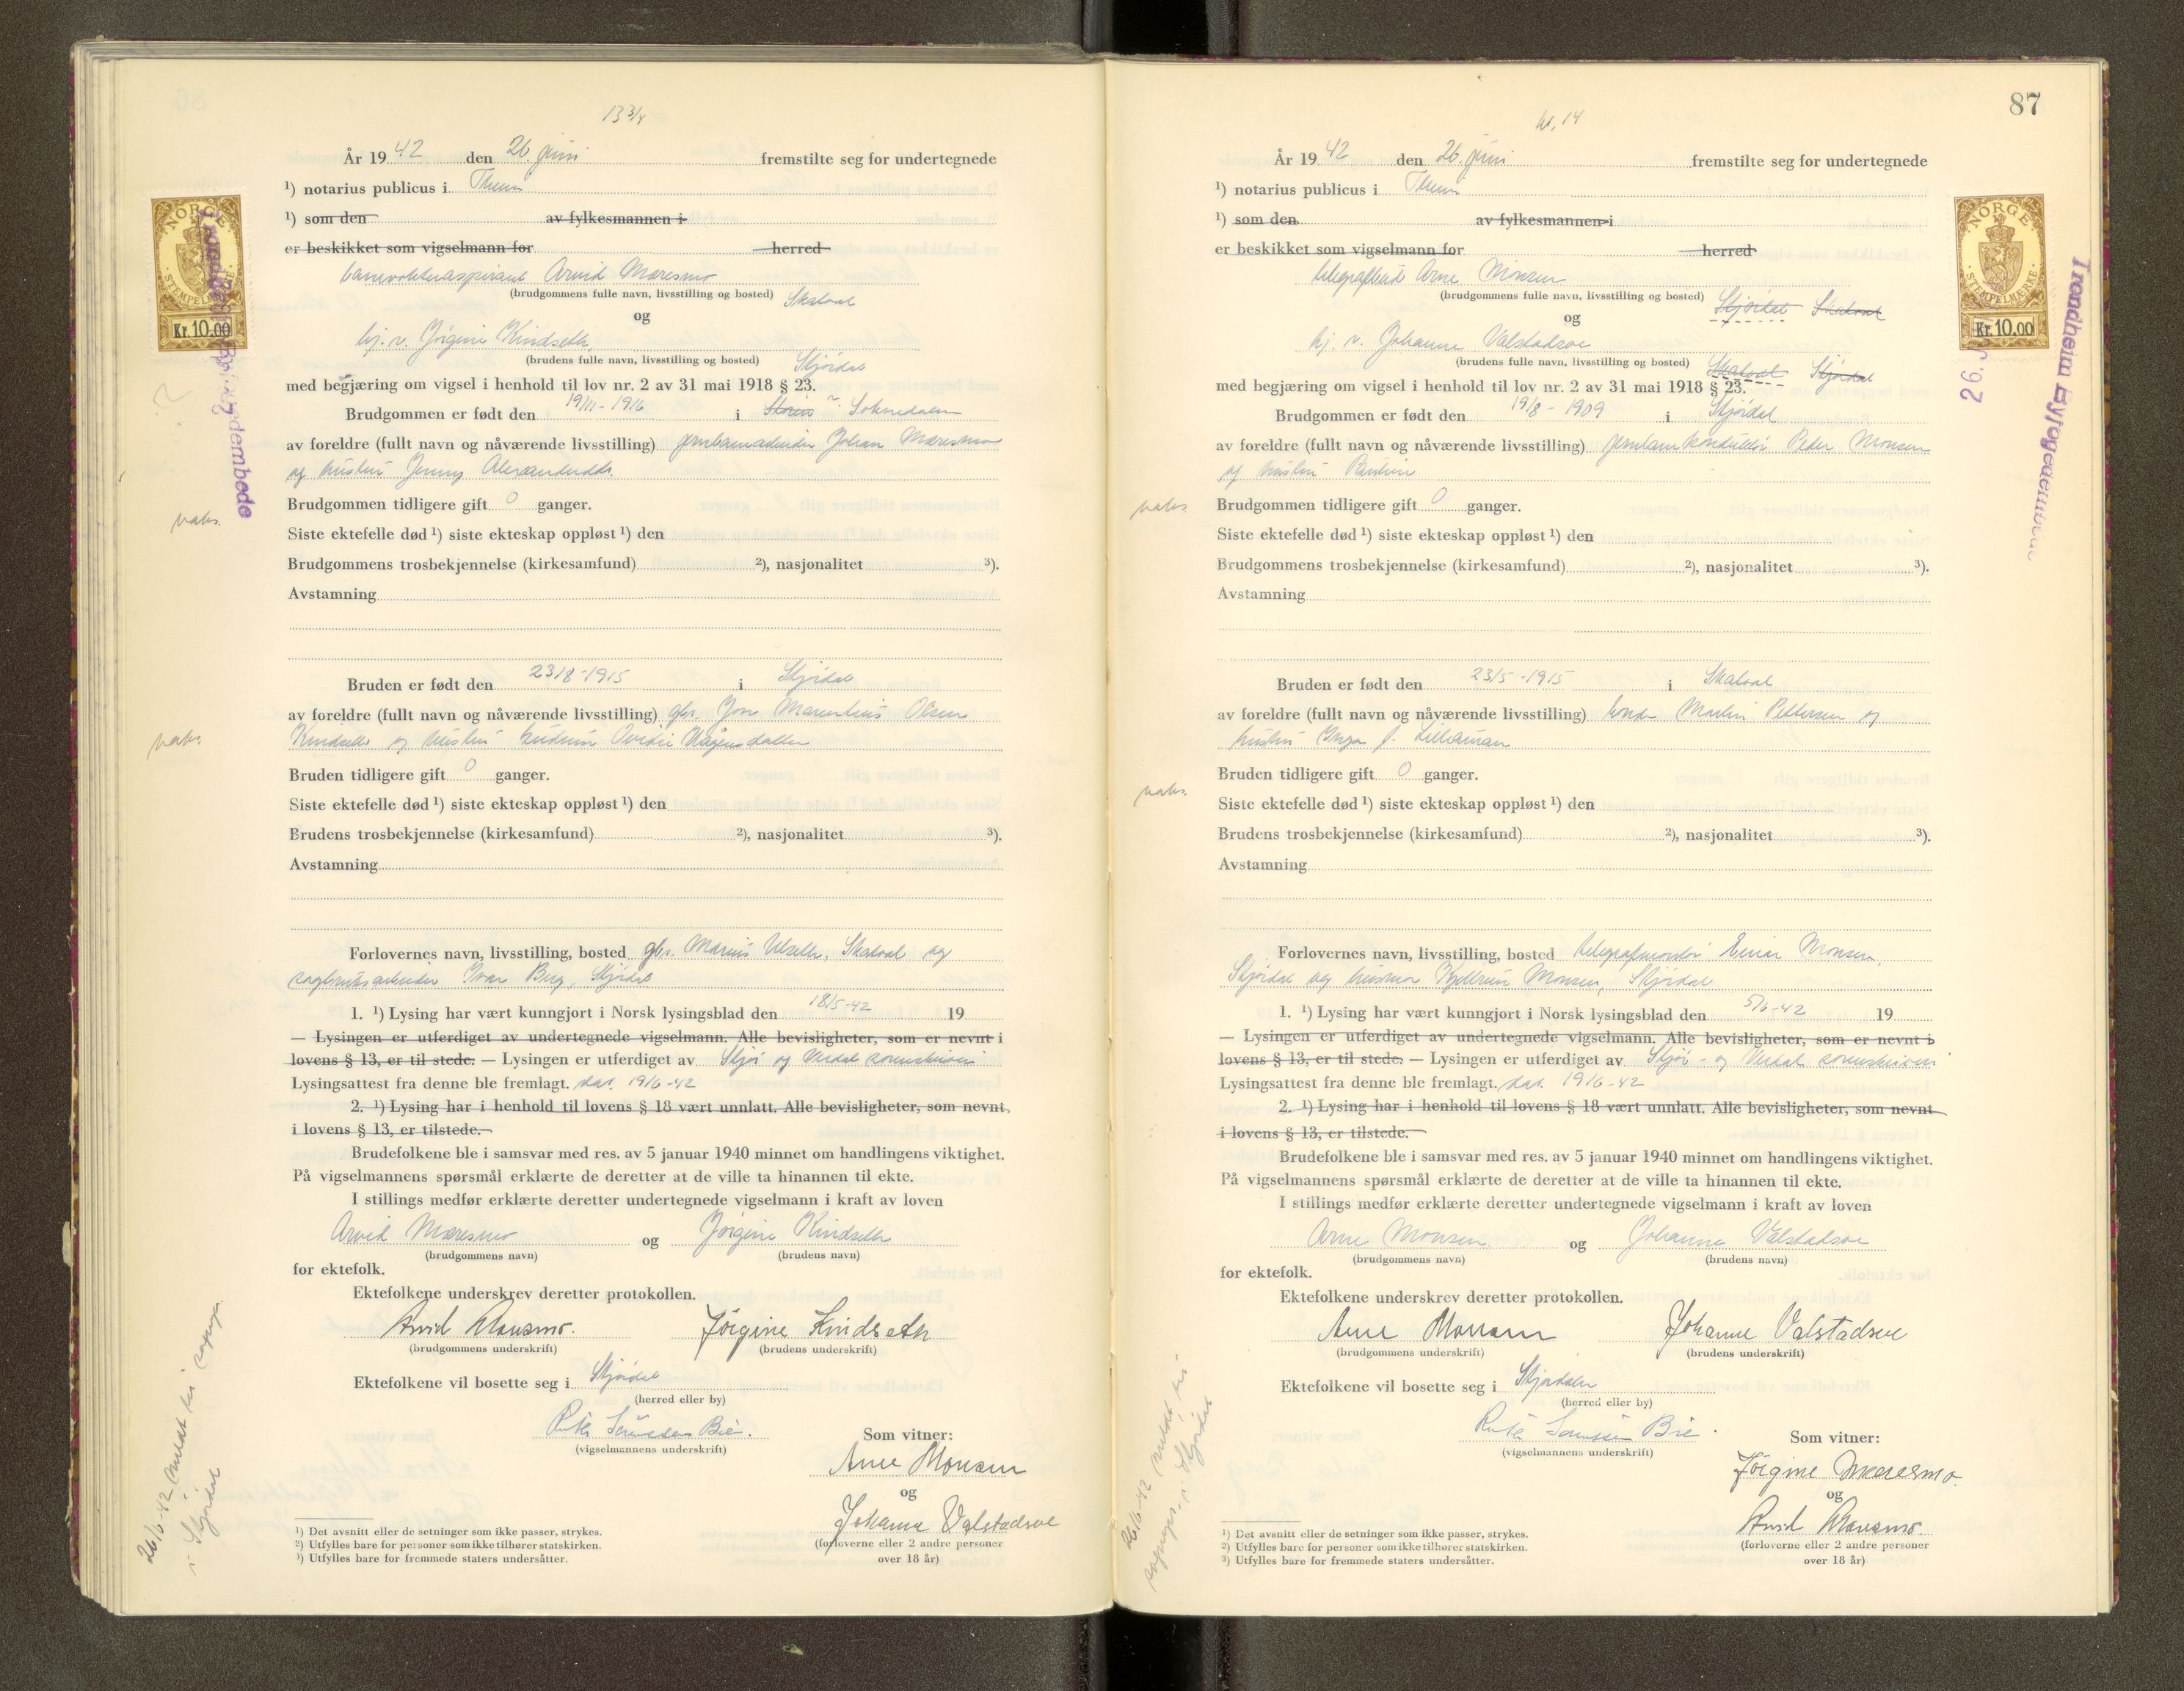 13 3/4
År 19 42 den 26. juni fremstilte seg for undertegnede
¹) notarius publicus i Theim
¹) som den av fylkesmannen i
er beskikket som vigselmann for herred
banevokteraspirant Arvid Mæresmo
(brudgommens fulle navn, livsstilling og bosted) Skatval
og
hj. v. Jørgine Kindseth
(brudens fulle navn, livsstilling og bosted) Stjørdal
med begjæring om vigsel i henhold til lov nr. 2 av 31 mai 1918 § 23.
Brudgommen er født den 19/11-1916 i Støren v. Soknedalen
av foreldre (fullt navn og nåværende livsstilling) jernbanearbeider Johan Mæresmo
og hustru Jenny Alexandersdtr.
Brudgommen tidligere gift 0 ganger.
vaks.
Siste ektefelle død ¹) siste ekteskap oppløst ¹) den
Brudgommens trosbekjennelse (kirkesamfund) ²), nasjonalitet ³).
Avstamning
Bruden er født den 23/8-1915 i Stjørdal
av foreldre (fullt navn og nåværende livsstilling) gbr. Jon Marentius Olsen
Kindseth og hustru Gudrun Ovedie Hågensdatter
vaks.
Bruden tidligere gift 0 ganger.
Siste ektefelle død ¹) siste ekteskap oppløst ¹) den
Brudens trosbekjennelse (kirkesamfund) ²), nasjonalitet ³).
Avstamning
Forlovernes navn, livsstilling, bosted gbr. Marius Ulseth, Skatval og
sagbruksarbeider Ivar Berg, Stjørdal
1. ¹) Lysing har vært kunngjort i Norsk lysingsblad den 18/5-42 19
— Lysingen er utferdiget av undertegnede vigselmann. Alle bevisligheter, som er nevnt i
lovens § 13, er til stede. — Lysingen er utferdiget av Stjør og Verdal sorenskriveri
Lysingsattest fra denne ble fremlagt. dat. 19/6-42
2. ¹) Lysing har i henhold til lovens § 18 vært unnlatt. Alle bevisligheter, som nevnt,
i lovens § 13, er tilstede.
Brudefolkene ble i samsvar med res. av 5 januar 1940 minnet om handlingens viktighet.
På vigselmannens spørsmål erklærte de deretter at de ville ta hinannen til ekte.
I stillings medfør erklærte deretter undertegnede vigselmann i kraft av loven
Arvid Mæresmo og Jørgine Kindseth
(brudgommens navn) (brudens navn)
for ektefolk.
Ektefolkene underskrev deretter protokollen.
Arvid Mæresmo. Jørgine Kindseth
(brudgommens underskrift) (brudens underskrift)
Ektefolkene vil bosette seg i Stjørdal
(herred eller by)
Bie.
(vigselmannens underskrift)
Som vitner:
Arne Monsen
og
Johanne Valstadsve
(forloverne eller 2 andre personer
over 18 år)
¹) Det avsnitt eller de setninger som ikke passer, strykes.
²) Utfylles bare for personer som ikke tilhører statskirken.
³) Utfylles bare for fremmede staters undersåtter.
26/6-42 meldt til sognepr.
i Stjørdal
NORGE
STEMPELMERKE
Kr. 10.00
87
kl. 14
År 19 42 den 26. juni fremstilte seg for undertegnede
¹) notarius publicus i Theim
¹) som den av fylkesmannen i
er beskikket som vigselmann for herred
telegrafbud Arne Monsen
(brudgommens fulle navn, livsstilling og bosted) Stjørdal Skatval
og
hj. v. Johanne Valstadsve
(brudens fulle navn, livsstilling og bosted) Skatval Stjørdal
med begjæring om vigsel i henhold til lov nr. 2 av 31 mai 1918 § 23.
Brudgommen er født den 19/8-1909 i Stjørdal
av foreldre (fullt navn og nåværende livsstilling) jernbanekonduktør Peder Monsen
og hustru Pauline
vaks.
Brudgommen tidligere gift 0 ganger.
Siste ektefelle død ¹) siste ekteskap oppløst ¹) den
Brudgommens trosbekjennelse (kirkesamfund) ²), nasjonalitet ³).
Avstamning
Bruden er født den 23/5-1915 i Skatval
av foreldre (fullt navn og nåværende livsstilling) bonde Martin Pettersen og
hustru Inga f. Lillemoen
Bruden tidligere gift 0 ganger.
vaks.
Siste ektefelle død ¹) siste ekteskap oppløst ¹) den
Brudens trosbekjennelse (kirkesamfund) ²), nasjonalitet ³).
Avstamning
Forlovernes navn, livsstilling, bosted telegrafmontør Einar Monsen,
Stjørdal og husmor Monsen, Stjørdal
1. ¹) Lysing har vært kunngjort i Norsk lysingsblad den 5/6-42 19
— Lysingen er utferdiget av undertegnede vigselmann. Alle bevisligheter, som er nevnt i
lovens § 13, er til stede. — Lysingen er utferdiget av Stjør- og Verdal sorenskriveri
Lysingsattest fra denne ble fremlagt. dat. 19/6-42
2. ¹) Lysing har i henhold til lovens § 18 vært unnlatt. Alle bevisligheter, som nevnt
i lovens § 13, er tilstede.
Brudefolkene ble i samsvar med res. av 5 januar 1940 minnet om handlingens viktighet.
På vigselmannens spørsmål erklærte de deretter at de ville ta hinannen til ekte.
I stillings medfør erklærte deretter undertegnede vigselmann i kraft av loven
Arne Monsen og Johanne Valstadsve
(brudgommens navn) (brudens navn)
for ektefolk.
Ektefolkene underskrev deretter protokollen.
Arne Monsen Johanne Valstadsve
(brudgommens underskrift) (brudens underskrift)
Ektefolkene vil bosette seg i Stjørdalen
(herred eller by)
Bie.
(vigselmannens underskrift)
Som vitner:
Jørgine Mæresmo.
og
Arvid Mæresmo.
(forloverne eller 2 andre personer
over 18 år)
¹) Det avsnitt eller de setninger som ikke passer, strykes.
²) Utfylles bare for personer som ikke tilhører statskirken.
³) Utfylles bare for fremmede staters undersåtter.
26/6-42 meldt til
sognepr. i Stjørdal
NORGE
STEMPELMERKE
Kr. 10.00
Trondheim Byfogdembede
26.